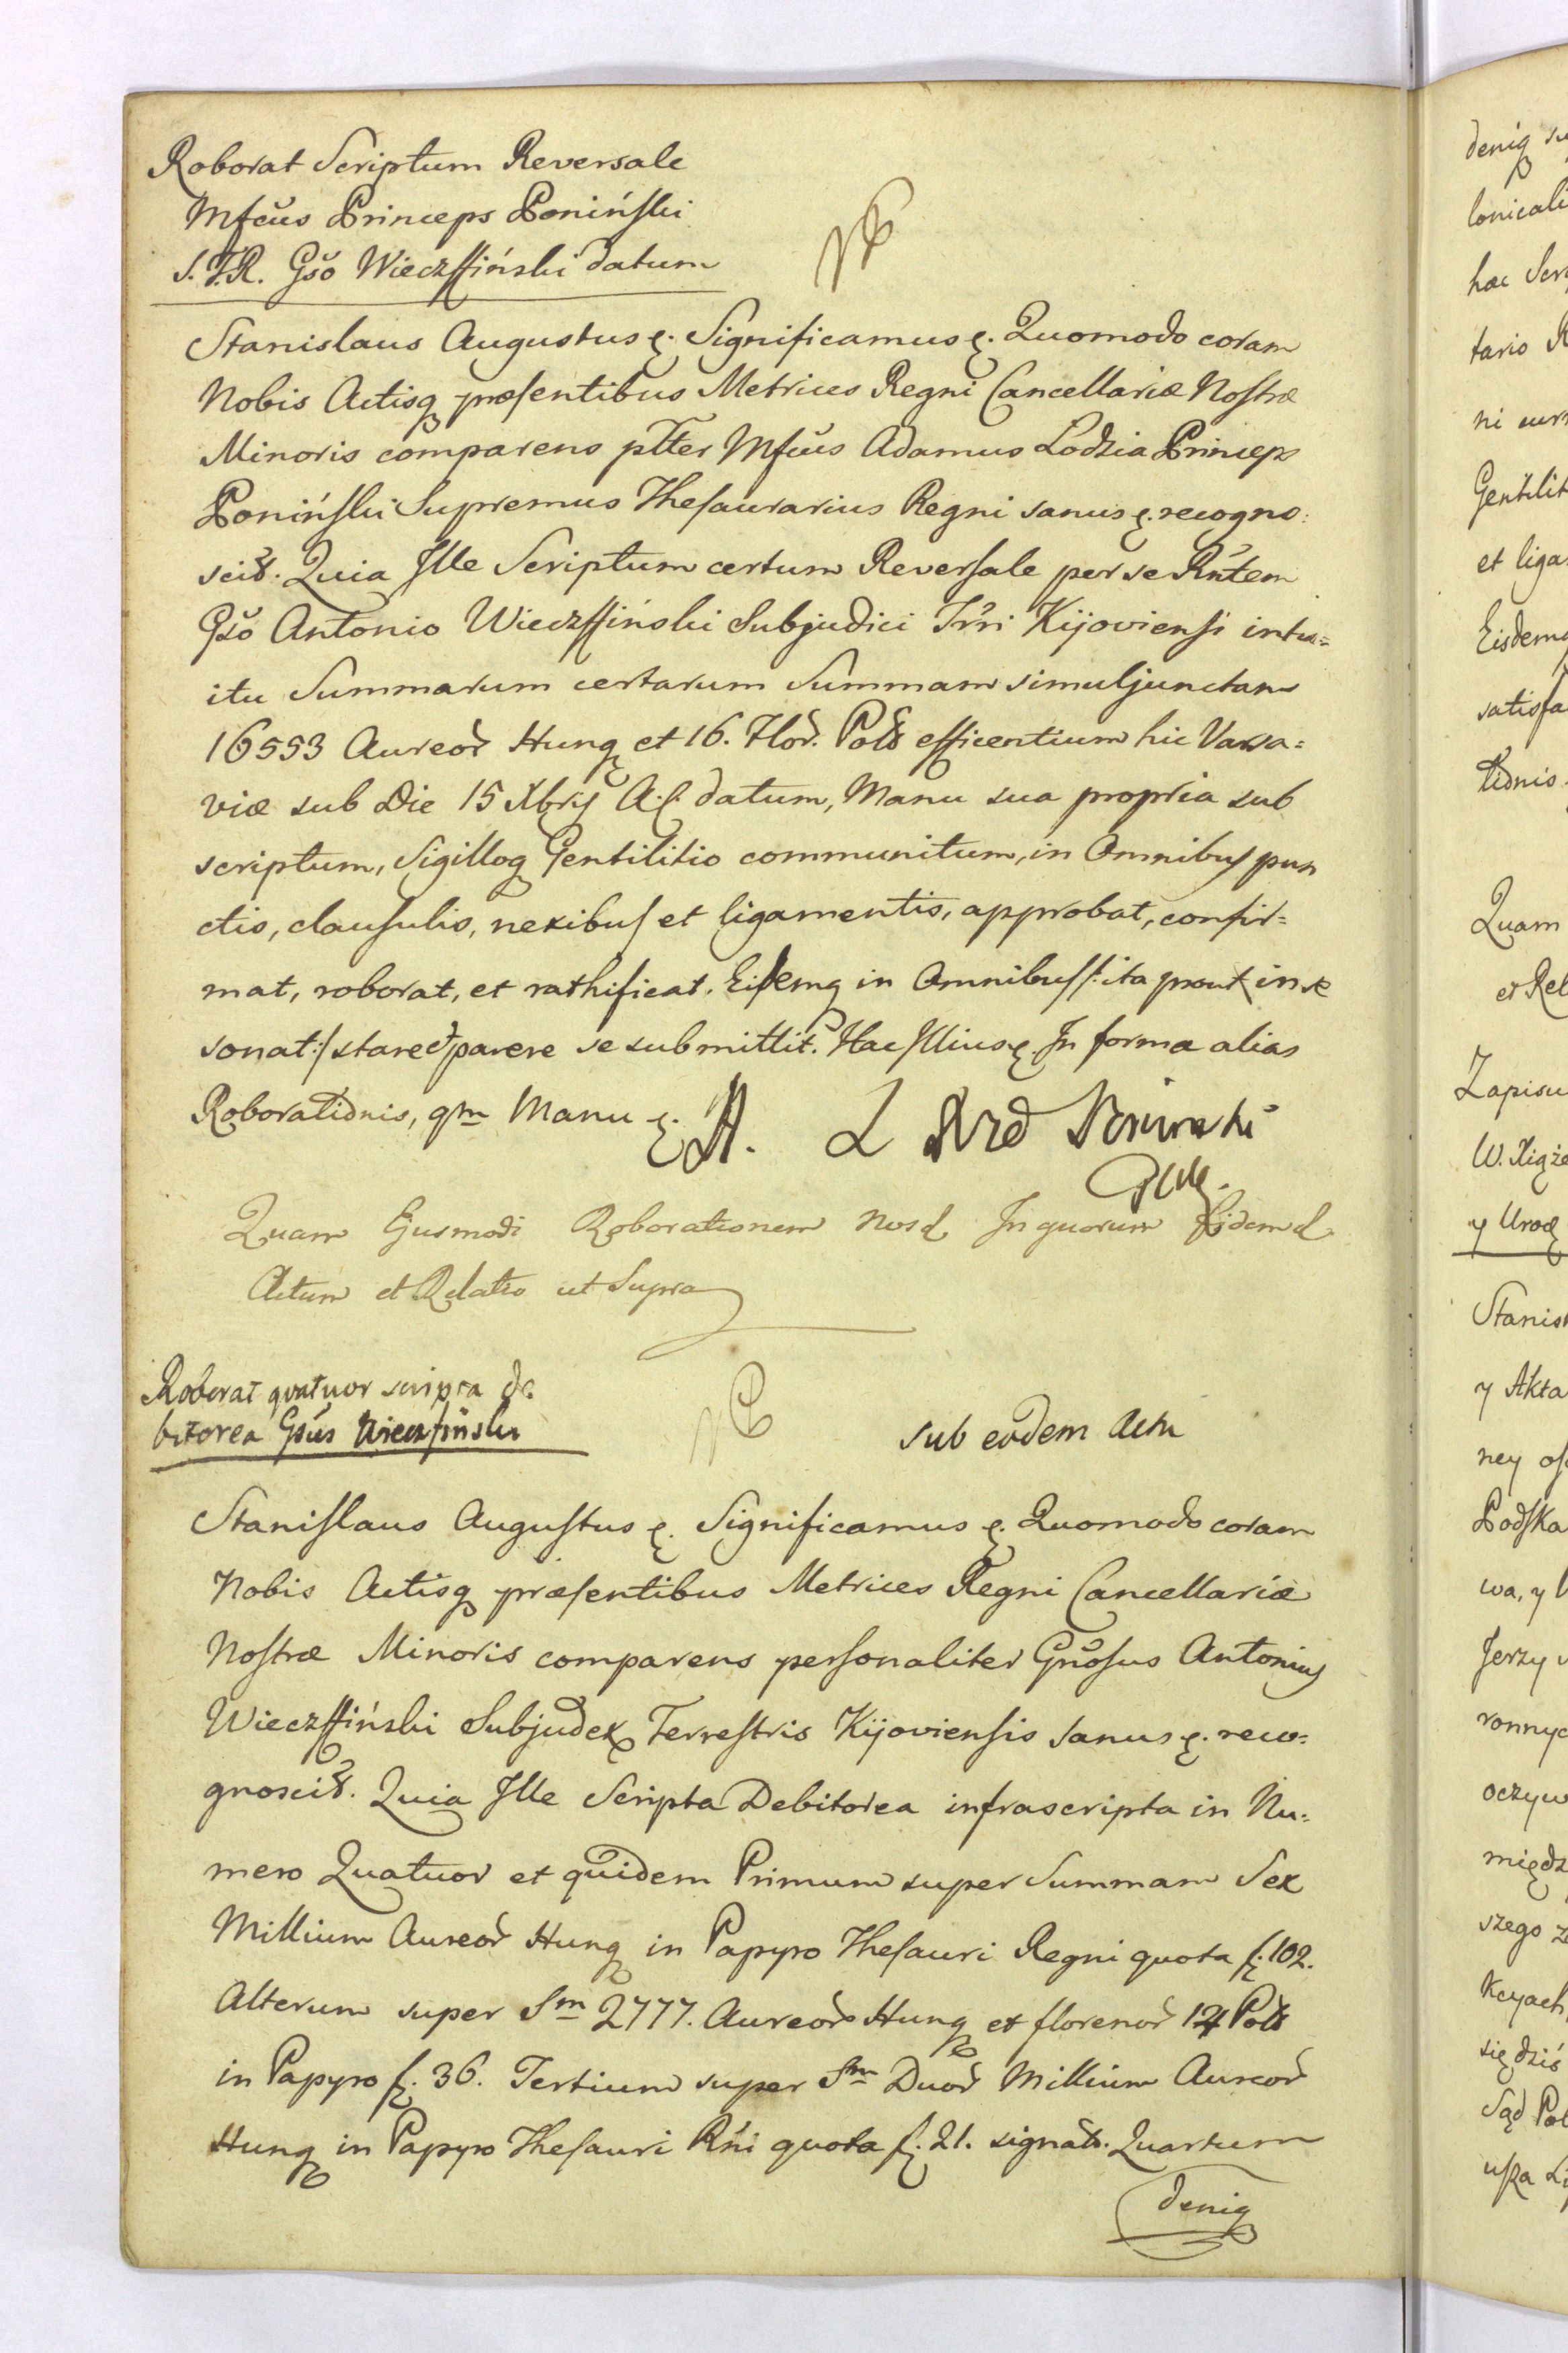 Roborat Scriptum Reversale
Mfcŭs Princeps Poniński
S.T.R. Gsŏ Wieczffiński datum
Stanislaus Augustus ę. Significamus ę. Quomodo coram
Nobis Actisq præsentibus Metrices Regni Cancellariæ Nostræ
Minoris comparens pltter Mfcŭs Adamus Lodzia Princeps
Poniński Supremus Thesaurarius Regni sanus ę. recogno:
scit. Quia Ille Scriptum certum Reversale per se Rñtem
Gsŏ Antonio Wieczffiński Subjudici Trri Kijoviensi intu=
itu Summarum certarum Summam simul junctam
16553 Aureor Hung et 16. Flor. Pols efficentium hic Varsa=
viæ sub Die 15 Xbrij A.C. datum, Manu sua propria sub
scriptum, Sigilloq Gentilitio communitum, in Omnibus pun
ctis, clausulis, nexibus et ligamentis, approbat, confir=
mat, roborat, et rathificat. Eisdemq in Omnibus /: ita prout in se
sonat :/ stare et parere se submittit. Hac Illius ę. In forma alias
Roborationis, qm Manu ę. A. L Poninski
Quam Ejusmodi Roborationem Nos ę In quorum Fidem ę
Actum et Relatio ut Supra
Roborat quatuor scripta de.
bitorea Gsŭs Wieczfinski
sub eodem Actu
Stanislaus Augustus ę. Significamus ę. Quomodo coram
Nobis Actisq præsentibus Metrices Regni Cancellariæ
Nostræ Minoris comparens personaliter Gnŏsus Antonius
Wieczffiński Subjudex Terrestris Kijoviensis sanus ę. reco=
gnoscit. Quia Ille Scripta Debitorea infrascripta in Nu=
mero Quatuor et quidem Primum super Summam Sex
Millium Aureor Hung in Papyro Thesauri Regni quota f. 102.
Alterum super Sm 2777. Aureor Hung et florenor 14 Pols
in Papyro f. 36. Tertium super Sm Duor Millium Aureor
Hung in Papyro Thesauri Rñi quota f. 21. signato. Quartum
deniq
deniq
tario
et liga
Quam
et Rel
y Uroę
Stanis
y Akta
ney
Podska
wa, y
Jerzy
ronnyc
oczyw
międz
szego
kcyach
się dziś